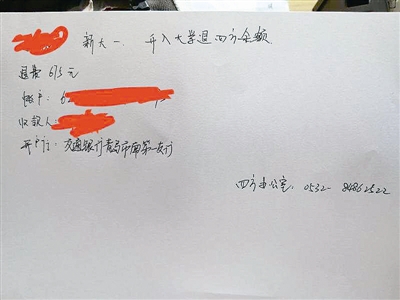 新大一. 升入大学退四方余额
退费 675 元
帐户:6
收款人:
开户行: 交通银行青岛市南第一支行
四方办公室: 0532-84862522